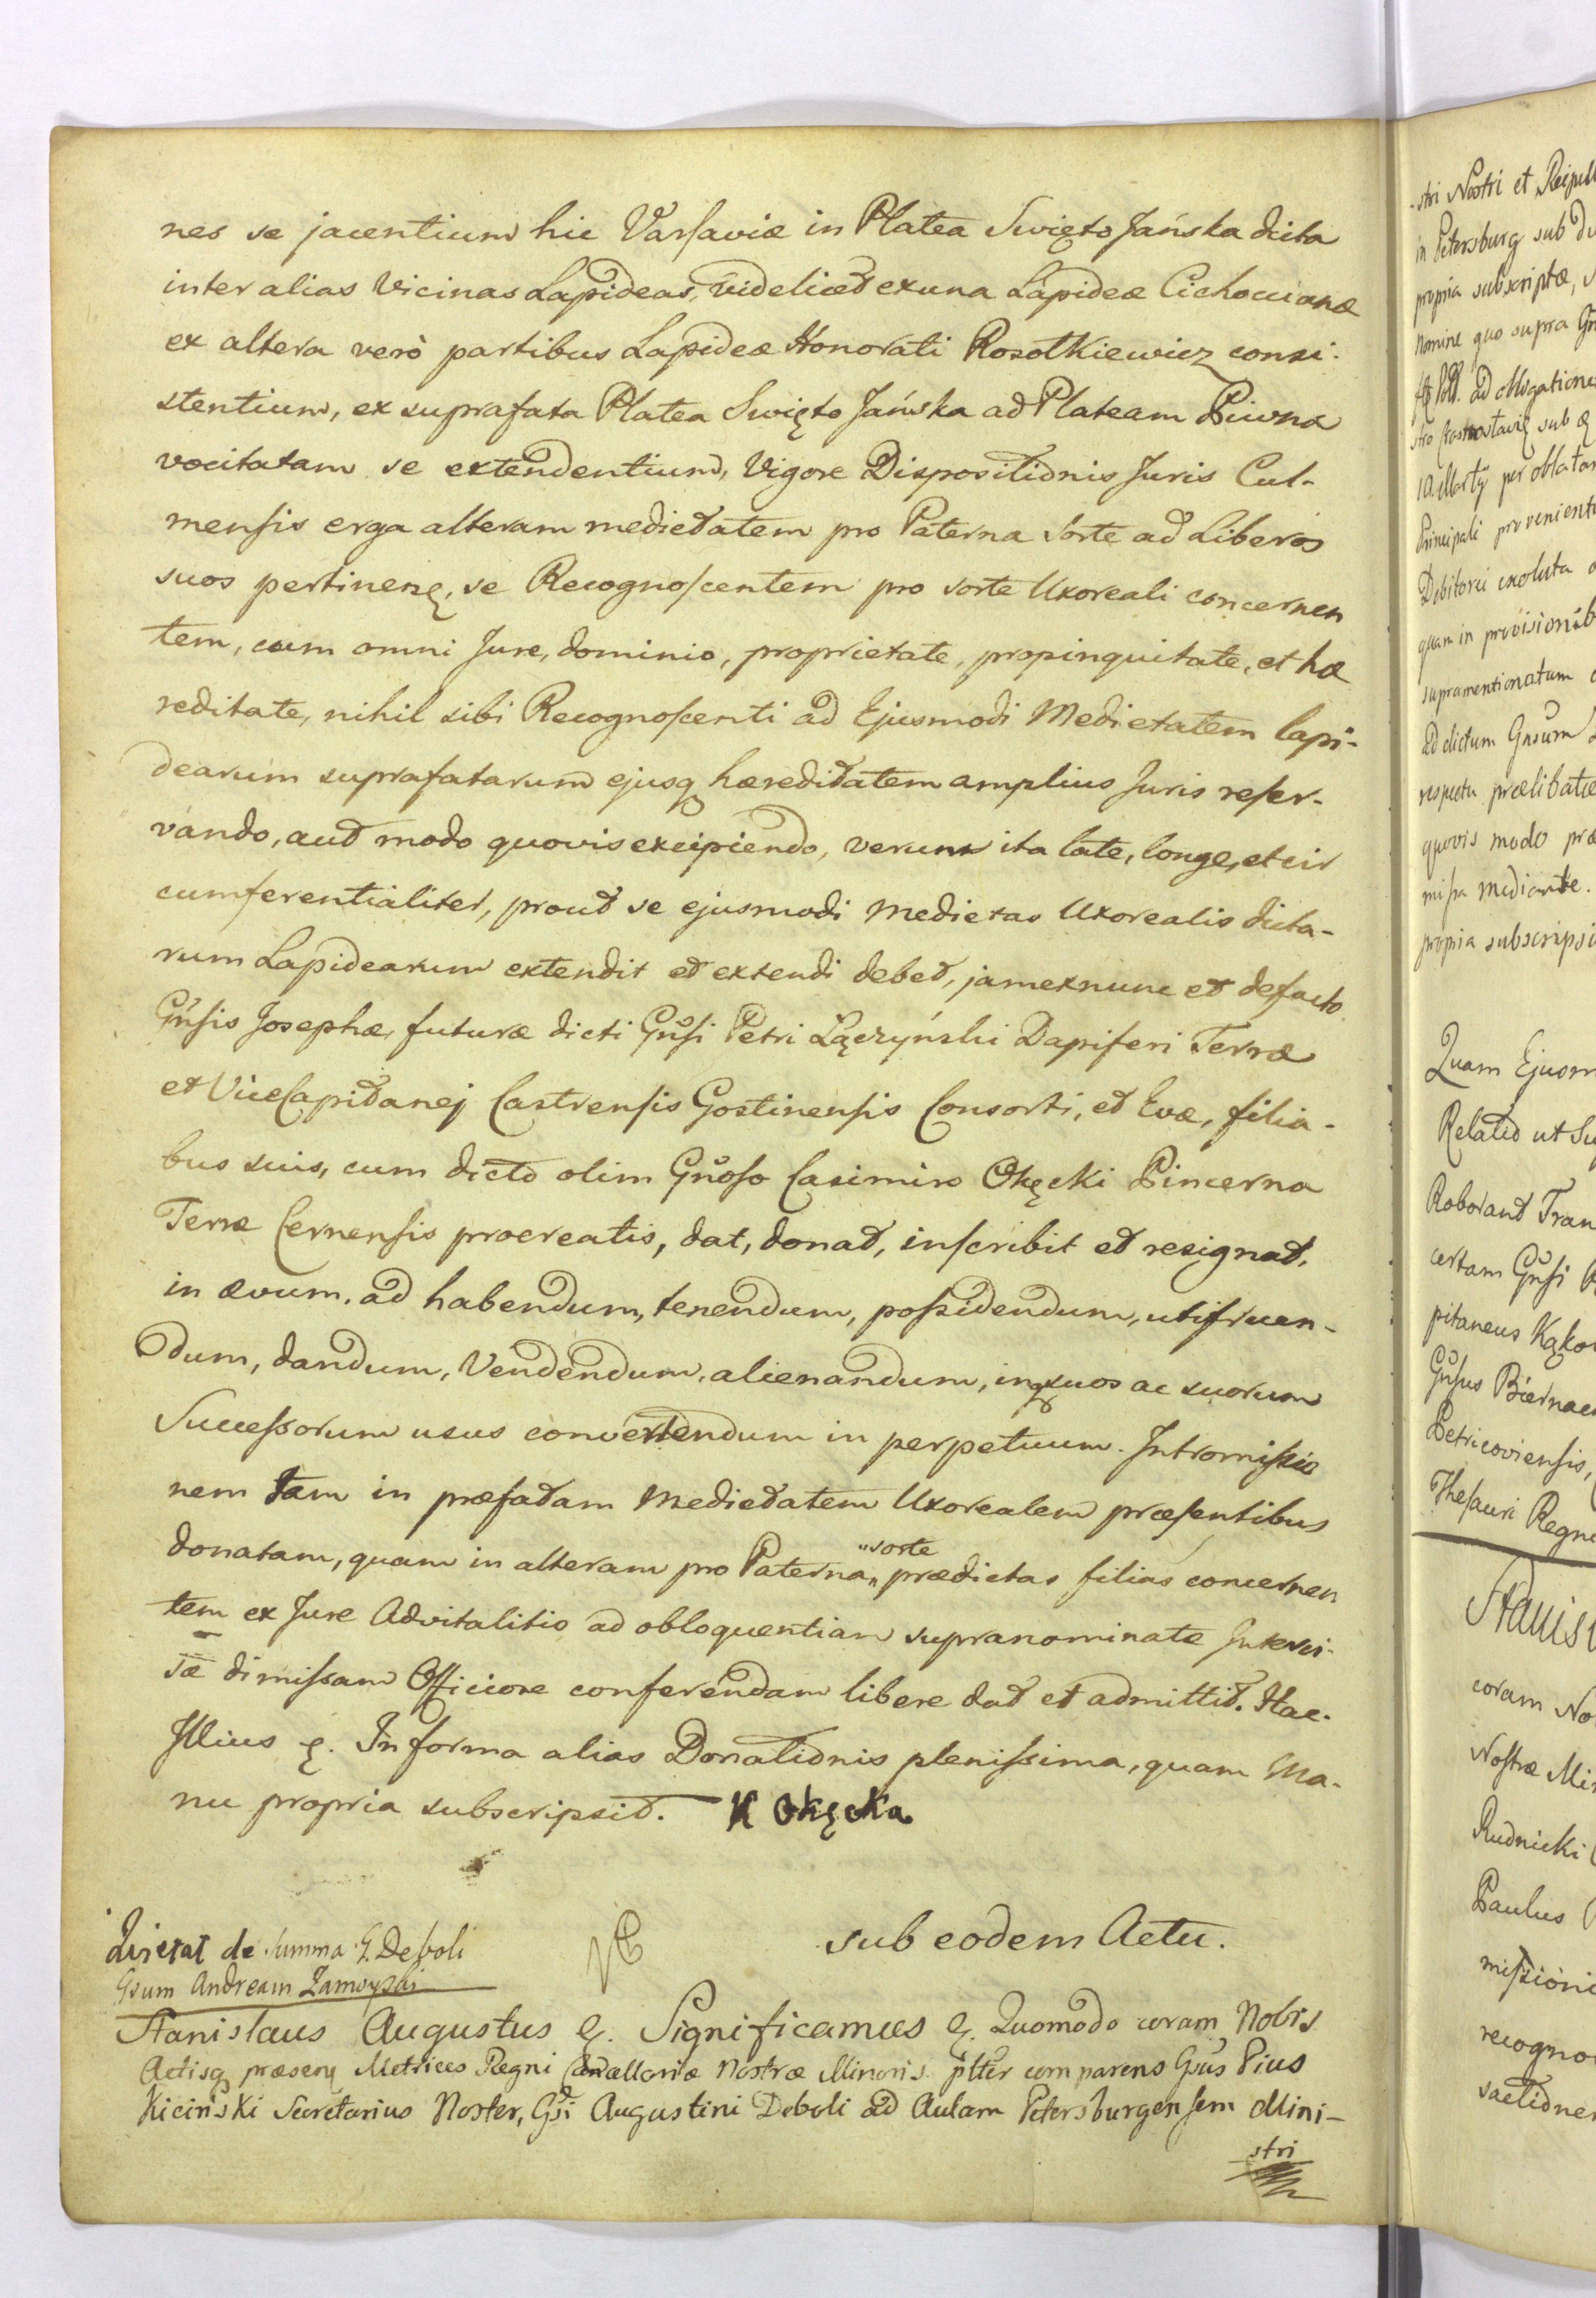 nes se jacentium hic Varsaviæ in Platea Swięto Jańska dicta
inter alias Vicinas Lapideas, videlicet ex una Lapideæ Cichocianæ
ex altera verò partibus Lapideæ Honorati Rosołkiewicz consi-
stentium, ex suprafata Platea Swięto Jańska ad Plateam Piwna
vocitatam se extendentium, Vigore Dispositionis Juris Cul-
mensis erga alteram medietatem pro Paterna Sorte ad Liberos
suos pertinenę, se Recognoscentem pro sorte Uxoreali concernen
tem, cum omni Jure, dominio, proprietate, propinquitate, et hæ
reditate, nihil sibi Recognoscenti ad Ejusmodi Medietatem lapi-
dearum suprafatarum ejusq hæreditatem amplius Juris reser-
vando, aut modo quovis excipiendo, verum ita late, longe, et cir
cumferentialiter, prout se ejusmodi Medietas Uxorealis dicta-
rum Lapidearum extendit et extendi debet, jam exnunc et defacto
Gnsis Josephæ, futuræ dicti Gnsi Petri Łączyński Dapiferi Terræ
et ViceCapitanej Castrensis Gostinensis Consorti, et Evæ, filia-
bus suis, cum dicto olim Gnoso Casimiro Okęcki Pincerna
Terræ Cernensis procreatis, dat, donat, inscribit et resignat,
in ævum, ad habendum, tenendum, possidendum, utifruen-
dum, dandum, Vendendum, alienandum, inq suos ac suorum
Successorum usus convertendum in perpetuum. Intromissio
nem tam in præfatam Medietatem Uxorealem præsentibus
donatam, quam in alteram pro Paterna "sorte" prædictas filias concernen
tem ex Jure Advitalitio ad obloquentiam supranominate Interci-
sæ dimissam Officiose conferendam libere dat et admittit. Hac.
Illius ę. In forma alias Donationis plenissima, quam Ma-
nu propria subscripsit. K Okęcka
sub eodem Actu.
Quietat de summa G. Deboli
Gsum Andream Zamoyski
Stanislaus Augustus ę. Significamus ę. Quomodo coram Nobis
Actisq præsenę Metrices Regni Cancellariæ Nostræ Minoris plter comparens Gsus Pius
Kiciński Secretarius Noster, Gsi Augustini Deboli ad Aulam Petersburgensem Mini-
stri
-stri Nostri et Reipubl
in Petersburg sub
propria subscriptæ,
Nomine quo supra
ad obligatione
sub
per oblatam
Principali provenient
Debitorii exoluta
quam in provisionib
supramentionatum
ad dictum Gnsum
respectu prælibatæ
quovis modo præ
missa mediante.
propria subscripsi
Quam Ejusm
Relatio ut Su
Roborand Tran
certam Gnsi
pitaneus Kąko
Gnsus Biernac
Petricoviensis,
Thesauri Regni
Stanis
coram No
Nostræ Mi
Rudnicki
Paulus
missioni
recogno